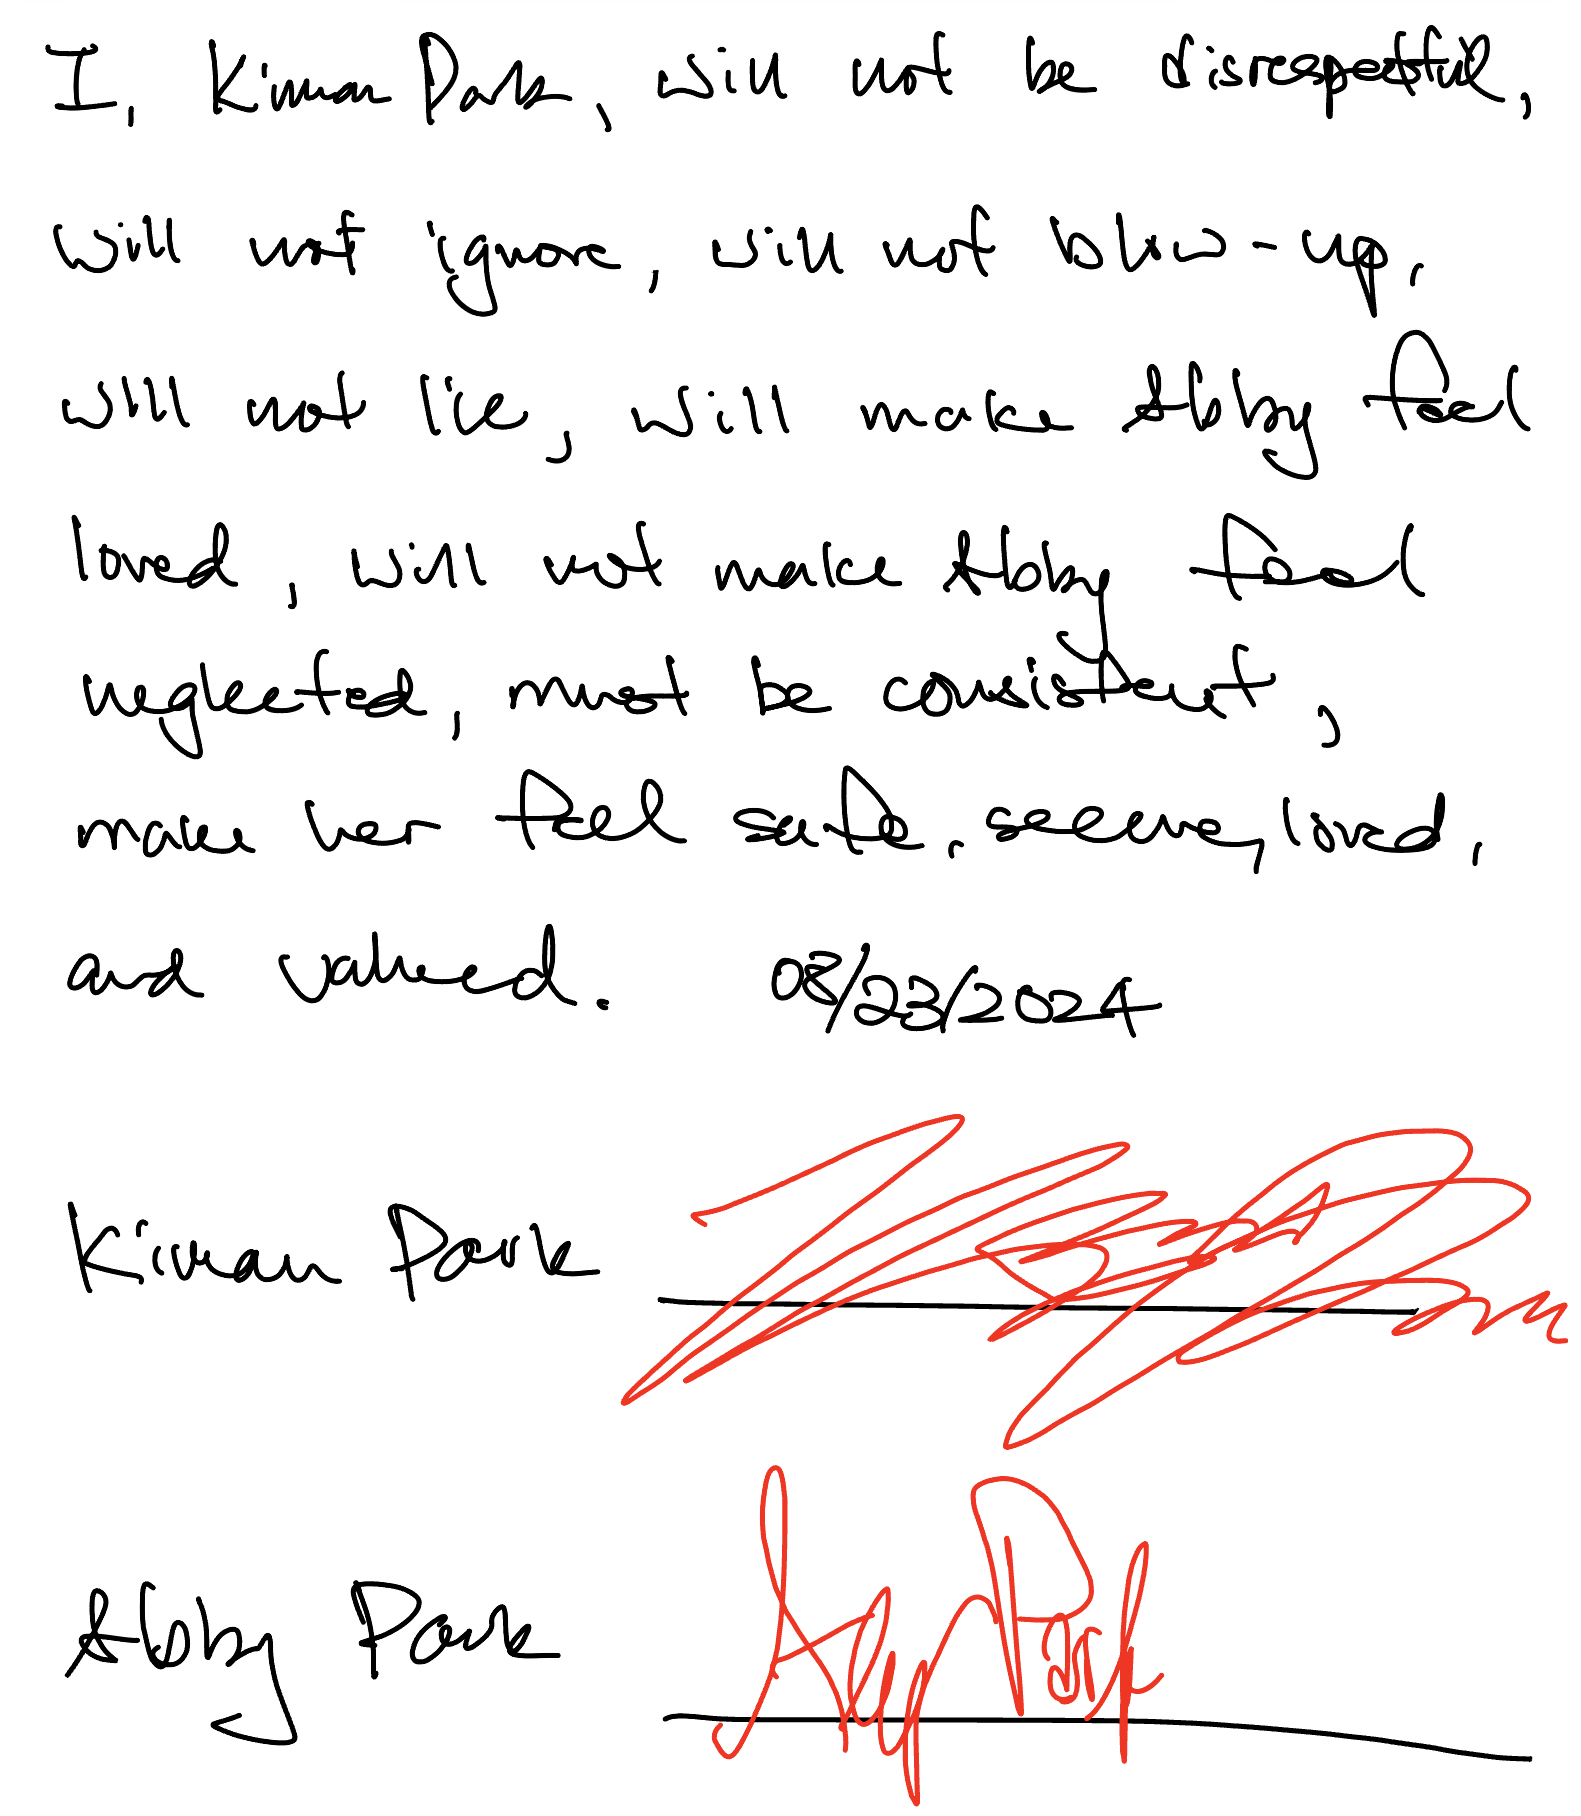 I, Kiman Park, will not be disrespectful,
will not ignore, will not blow-up,
will not lie, will make Abby feel
loved, will not make Abby feel
neglected, must be consistent,
make her feel safe, secure, loved,
and valued. 08/23/2024
Kiman Park
Abby Park Abby Park